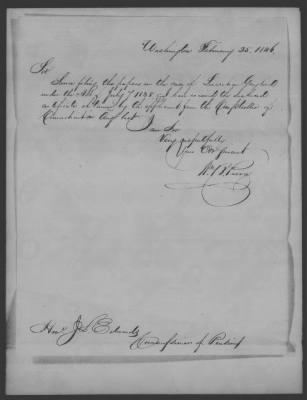 Washington February 25. 1846.
Sir
Since filing the papers in the case of
under the Act of July 7 1838 I have received the enclosed
certificate obtained by the applicant from the Comptroller of
Connecticut on Aug last
I am Sir
Very respectfully
your Obt Servant
Hon. J L Edwards
Commissioner of Pensions